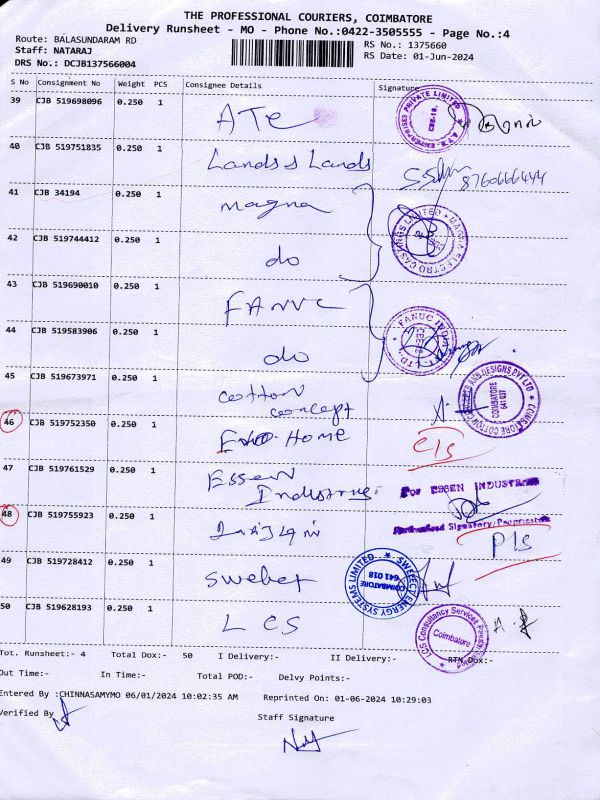 THE PROFESSIONAL COURIERS, COIMBATORE
Delivery Runsheet - MO - Phone No.:0422-3505555 - Page No.:4
Route: BALASUNDARAM RD
RS No.: 1375660
Staff: NATARAJ
RS Date: 01-Jun-2024
DRS No.: DCJB137566004
S No Consignment No Weight PCS Consignee Details Signature
39 CJB 519698096 0.250 1 ATE
40 CJB 519751835 0.250 1 Lands & Lands 8760666444
41 CJB 34194 0.250 1 magna
MAGNA ELECTRO CASTINGS LIMITED
42 CJB 519744412 0.250 1 do
43 CJB 519690010 0.250 1 FANUC
44 CJB 519583906 0.250 1 do
45 CJB 519673971 0.250 1 cotton
concept
COIMBATORE
641 037
46 CJB 519752350 0.250 1 Home
47 CJB 519761529 0.250 1 Essen
FOR ESSEN INDUSTRIES
48 CJB 519755923 0.250 1
49 CJB 519728412 0.250 1
SWELECT ENERGY SYSTEMS LIMITED
COIMBATORE
641 018
50 CJB 519628193 0.250 1 LCS
LCS Consultancy Services Private Limited
Coimbatore
Tot. Runsheet:- 4 Total Dox:- 50 I Delivery:- II Delivery:- RTN Dox:-
Out Time:- In Time:- Total POD:- Delvy Points:-
Entered By :CHINNASAMYMO 06/01/2024 10:02:35 AM Reprinted On: 01-06-2024 10:29:03
Verified By
Staff Signature